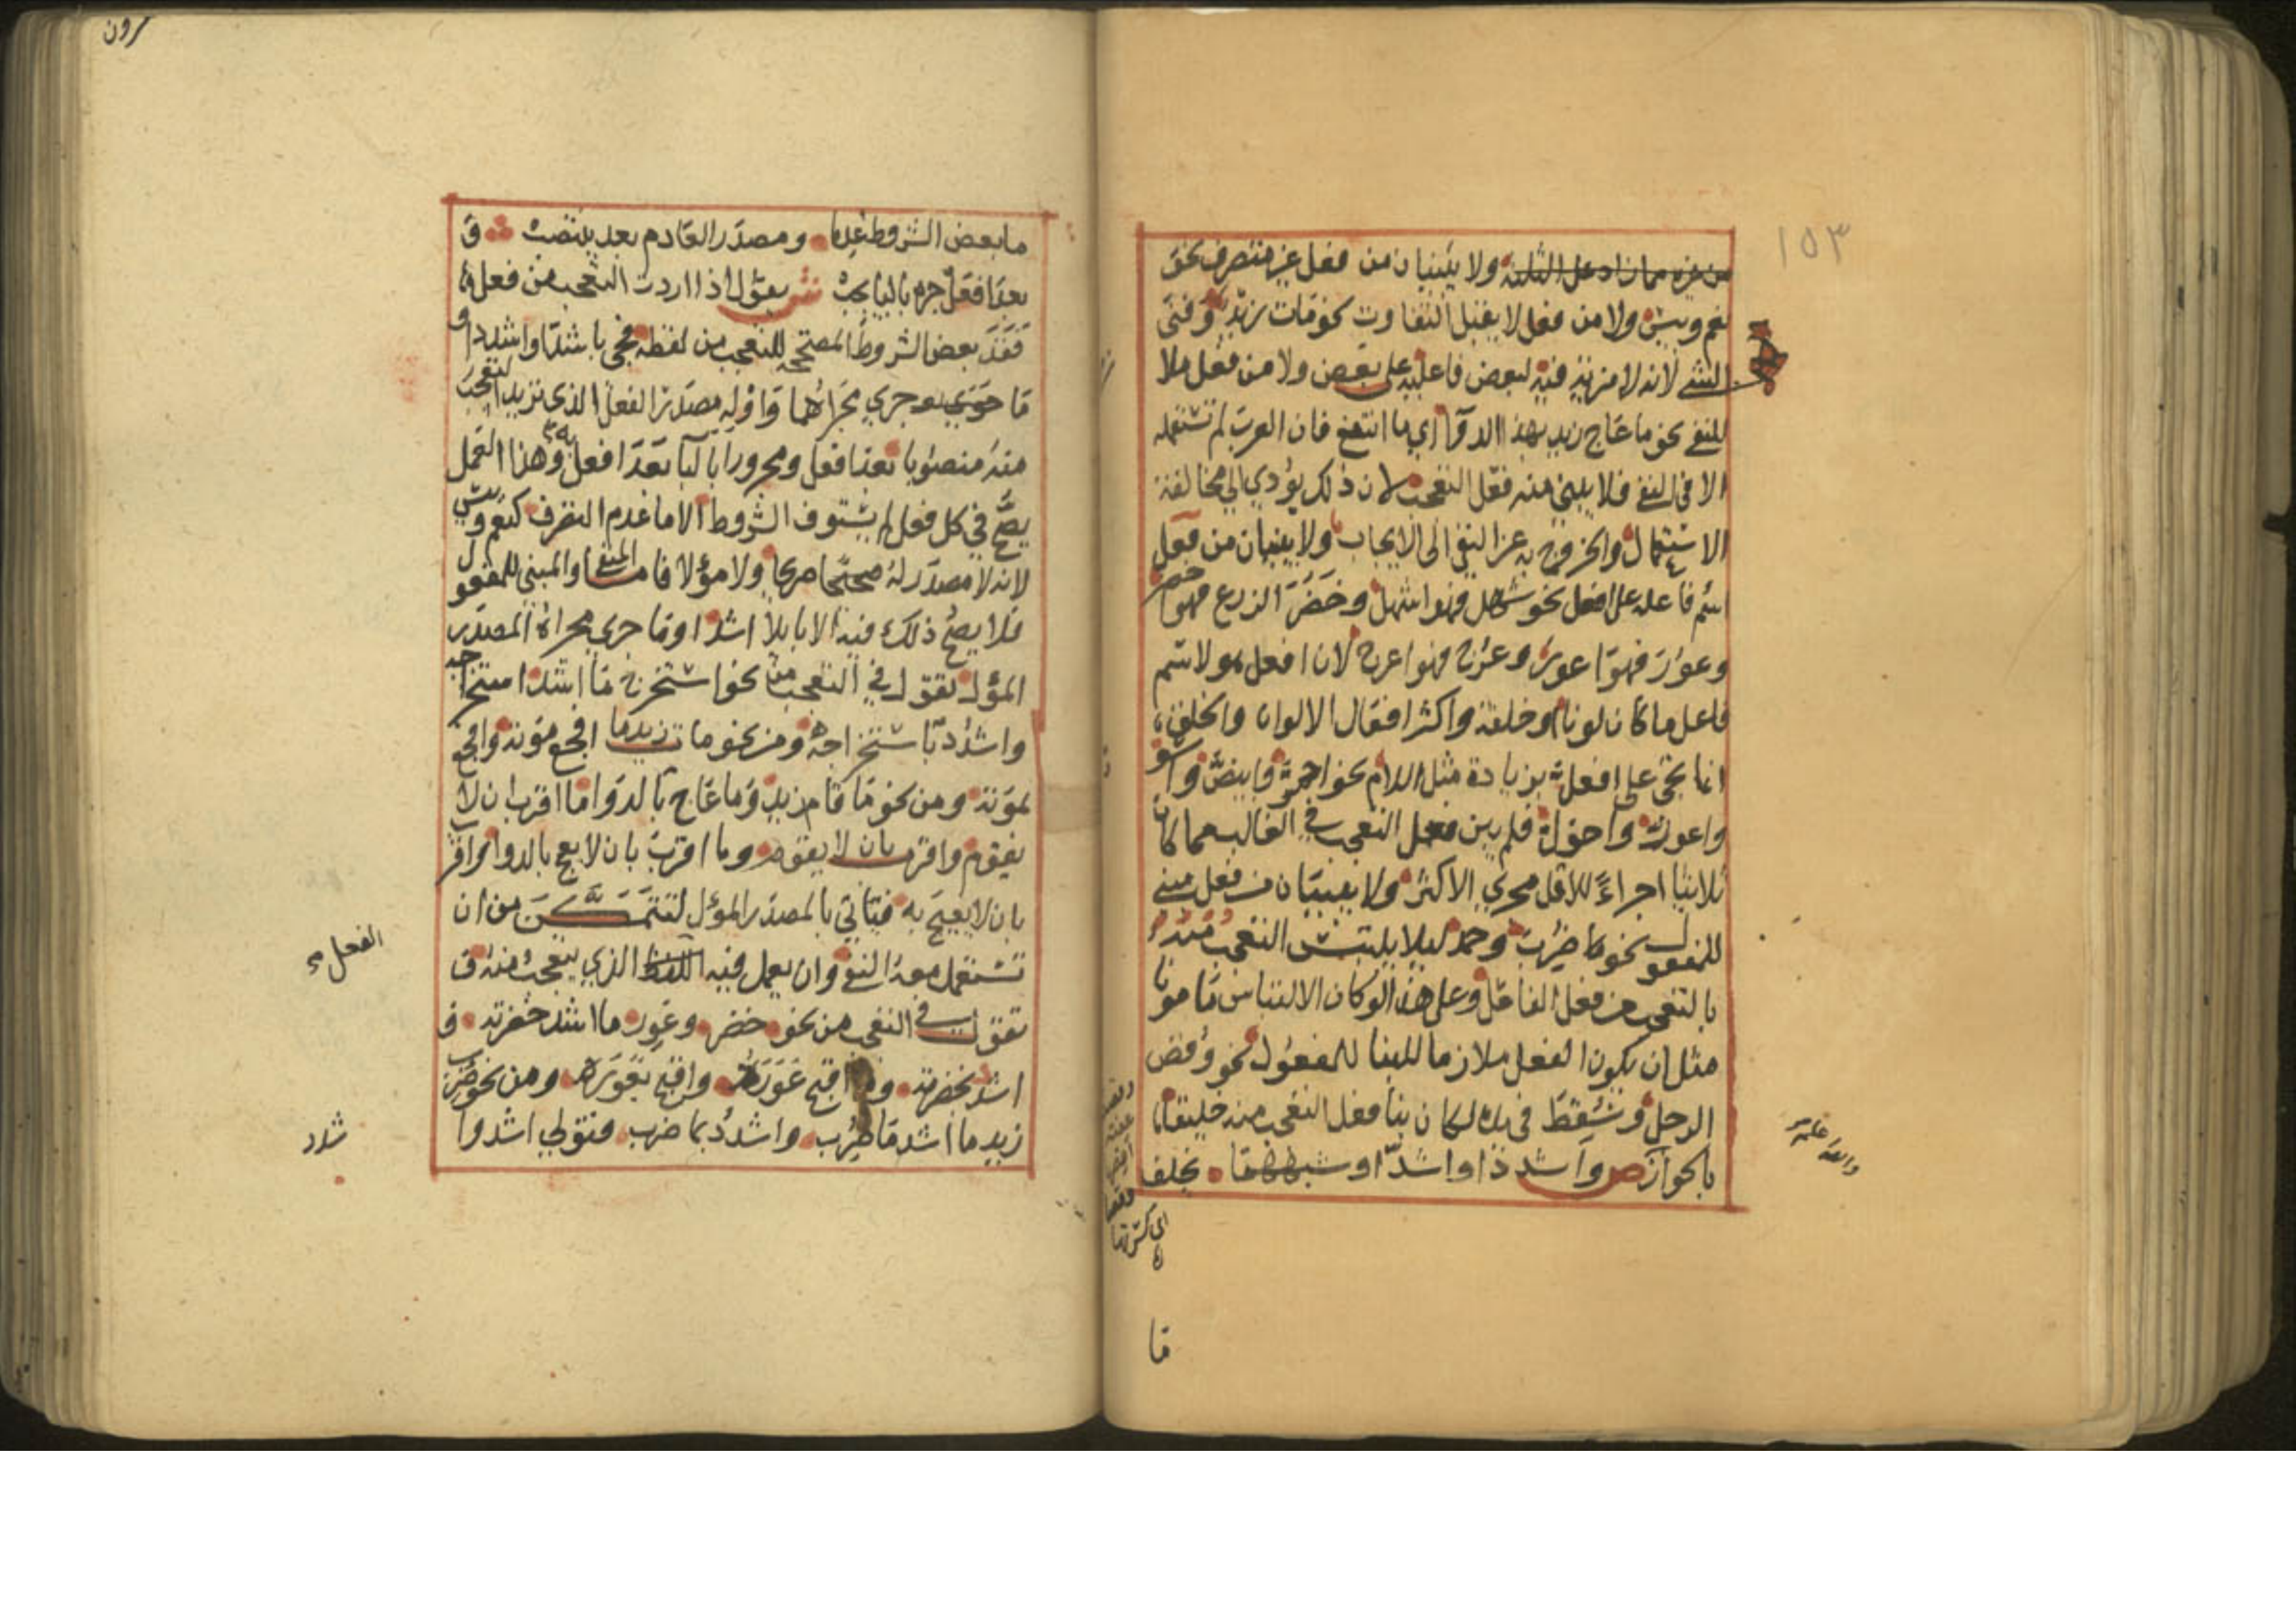 ١٥٣
من غيره مما زاد على الثلاثة ولا يبنيان من فعل غير متصرف نحو
نعم وبئس ولا من فعل لا يقبل التفاوت نحو مات زيد وفنى
الشي لانه لا مزية فيه لبعض فاعليه على بعض ولا من فعل ملا
للنفي نحو ما عاج زيد بهذا الدوا اي ما انتفع فان العرب لم تستعمله
الا في النفي فلا يبنى منه فعل التعجب لان ذلك يؤدي الى مخالفة
الاستعمال والخروج به عن النفي الى الايجاب ولا يبنيان من فعل
اسم فاعله على افعل نحو شهل فهو اشهل وخضر الزرع فهو اخضر
وعور فهو اعور وعرج فهو اعرج لان افعل هو لاسم
فاعل ما كان لونا او خلقة واكثر افعال الالوان والخلق
انما تجي على افعل بزيادة مثل اللام نحو احمر وابيض واسود
واعور واحول فلم يبن فعل التعجب في الغالب مما كان
ثلاثيا اجراءً للاقل مجرى الاكثر ولا يبنيان من فعل مبني
للمفعول نحو ما ضرب وحمد ليلا يلتبس التعجب منه
بالتعجب من فعل الفاعل وعلى هذا لو كان الالتباس مامونا
مثل ان يكون الفعل ملازما للبنا للمفعول نحو وقص
الرجل وسقط في يده لكان بنا فعل التعجب منه خليقا
بالجواز ص واشدد او اشد او شبههما يخلف
ما
والله علم
ما بعض الشروط عدما ومصدر العادم بعد ينتصب و
بعد افعل جره بالبا يجب ش يقول اذا اردت التعجب من فعل
فقد بعض الشروط المصححة للتعجب من لفظه فجي باشد او اشدد او
ما جرى مجراهما واوله مصدر الفعل الذي تريد التعجب
منه منصوبا بعد افعل ومجرورا بالبا بعد افعل وهذا العمل
يصح في كل فعل لم يستوف الشروط الا ما عدم التصرف كنعم وبئس
لانه لا مصدر له صحيحا صريحا ولا مؤلا فاما المنفي والمبني للمفعول
فلا يصح ذلك فيه الا بايلا اشد او ما جرى مجراه المصدر
المؤل تقول في التعجب من نحو استخرج ما اشد استخراجه
واشدد باستخراجه ومن نحو مات زيد ما افجع موته وافجع
بموته ومن نحو ما قام زيد وما عاج بالدوا ما اقرب ان لا
يقوم واقرب بان لا يقوم وما اقرب بان لا يعج بالدوا واقرب
بان لا يعيج به فتاتي بالمصدر المؤل لتتمكن من ان
تستعمل معه النفي وان يعمل فيه الذي يتعجب منه و
الفعل
تقول في التعجب من نحو خضر وعور ما اشد خضرته و
اشدد بخضرته وما اقبح عوره واقبح بعوره ومن نحو ضرب
زيد ما اشد ما ضرب واشدد بما ضرب فتولي اشد و
شدد